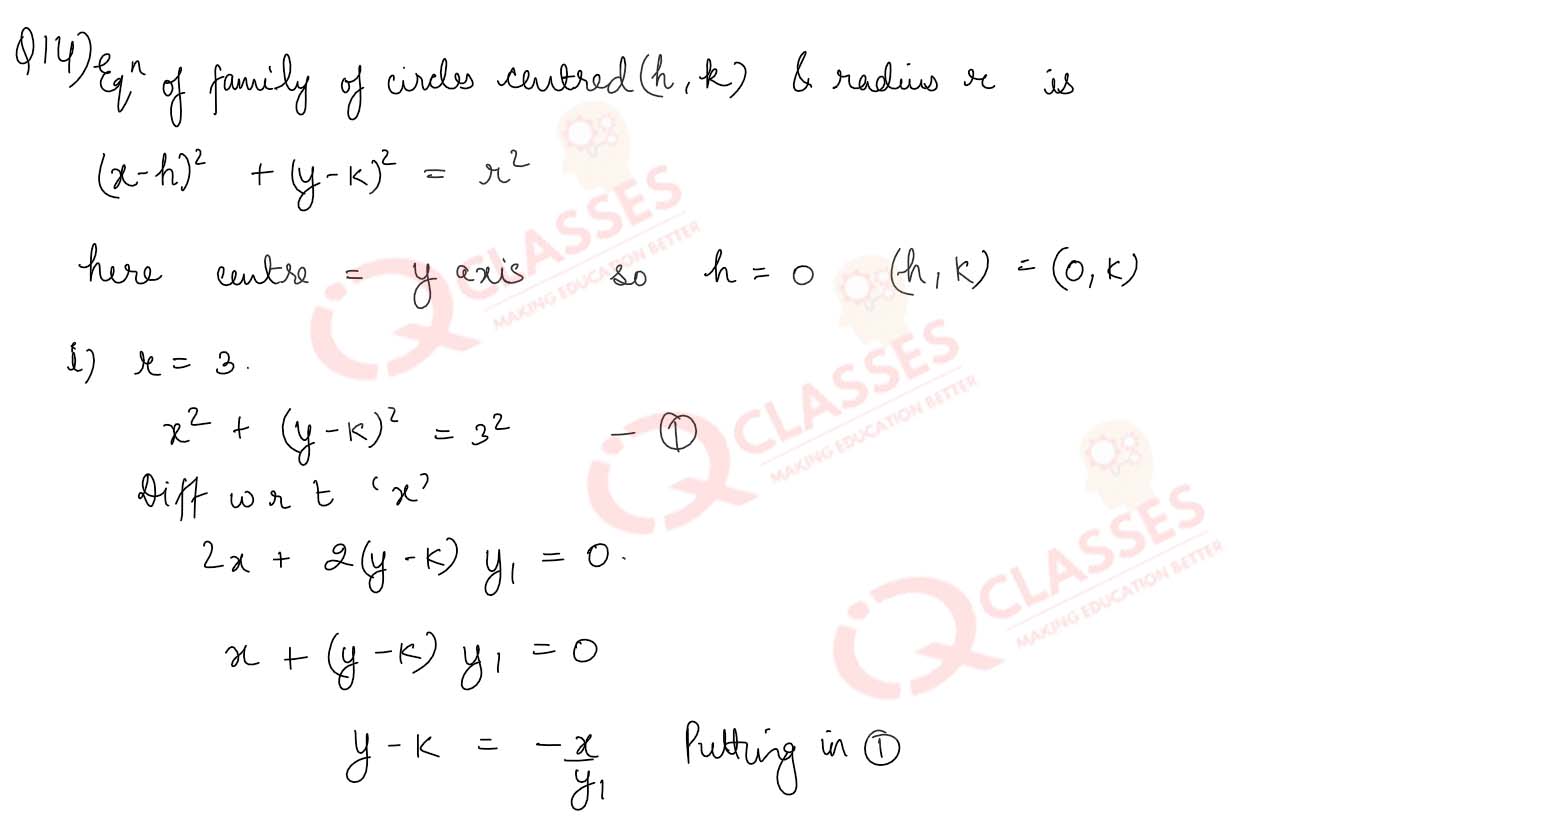 Q14) Eqⁿ of family of circles centred (h, k) & radius r is
(x-h)² + (y-k)² = r²
here centre = y axis so h = 0 (h, k) = (0, k)
i) r = 3.
x² + (y-k)² = 3² - ①
Diff w r t 'x'
2x + 2(y-k) y₁ = 0.
x + (y-k) y₁ = 0
y-k = -x/y₁ Putting in ①
IQ CLASSES
MAKING EDUCATION BETTER
IQ CLASSES
MAKING EDUCATION BETTER
IQ CLASSES
MAKING EDUCATION BETTER